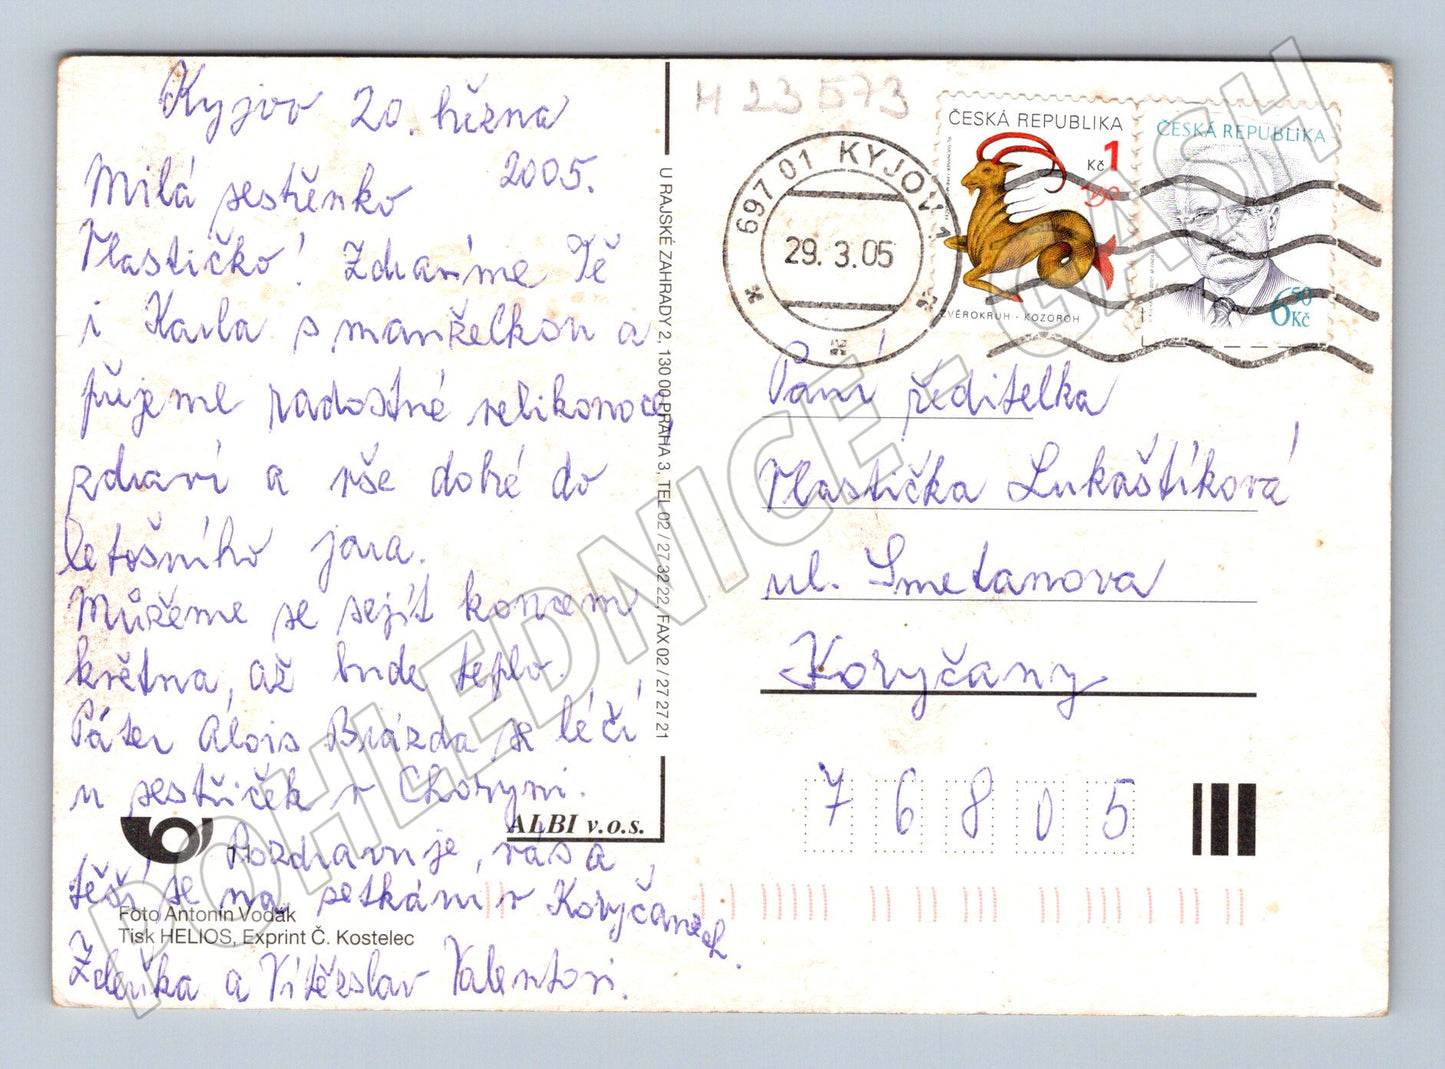 Kyjov 20. března
2005.
Milá sestřenko
Vlastičko! Zdravíme Tě
i Karla s manželkou a
přejeme radostné velikonoce,
zdraví a vše dobré do
letošního jara.
Můžeme se sejít koncem
května, až bude teplo.
Páter Alois Brázda se léčí
u sestřiček v Choryni.
Pozdravuje vás a
těší se na setkání v Koryčanech.
Zdeňka a Vítězslav Valentovi.
11
Foto Antonín Vodák
Tisk HELIOS, Exprint Č. Kostelec
ALBI v.o.s.
U RAJSKÉ ZAHRADY 2, 130 00 PRAHA 3, TEL 02 / 27 32 22, FAX 02 / 27 27 21
M 23 573
697 01 KYJOV 1
29. 3. 05
ČESKÁ REPUBLIKA
1 Kč
ZVĚROKRUH - KOZOROH
ČESKÁ REPUBLIKA
6 50 Kč
Paní ředitelka
Vlastička Lukaštíková
ul. Smetanova
Koryčany
76805
POHLEDNICE - CASH